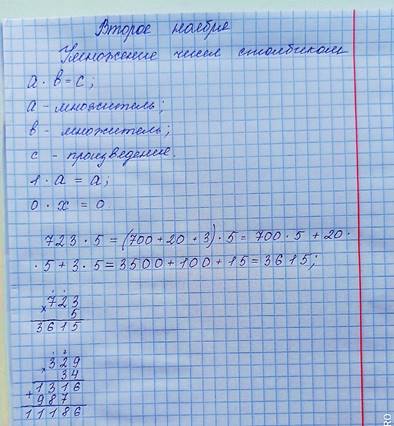 Второе ноября
Умножение чисел столбиком
а · в = с;
а - множитель;
в - множитель;
с - произведение.
1 · а = а;
0 · х = 0
723 · 5 = (700 + 20 + 3) · 5 = 700 · 5 + 20 ·
· 5 + 3 · 5 = 3500 + 100 + 15 = 3615;
× 723
5
3615
× 329
34
+ 1316
987
11186